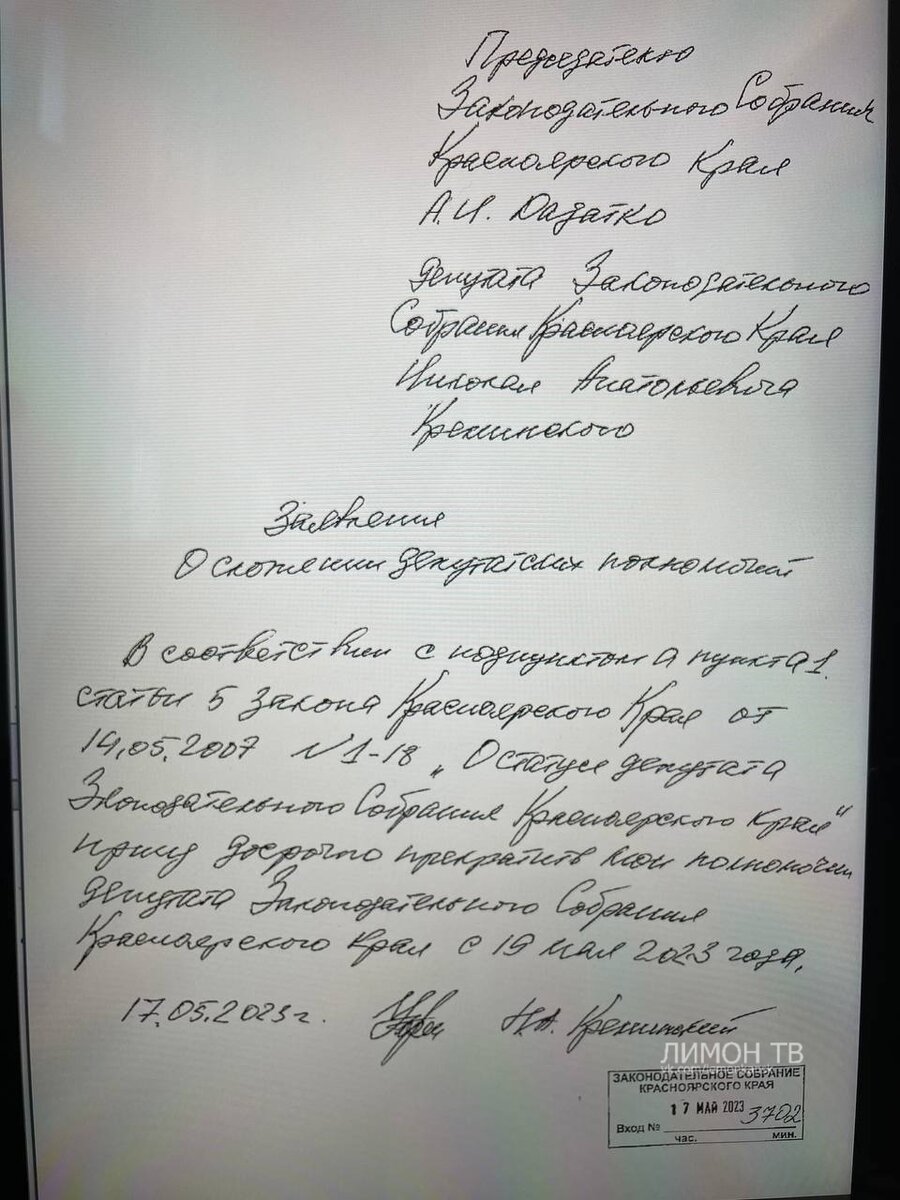 Председателю
Законодательного Собрания
Красноярского Края
А.И. Дадатко
Депутата Законодательного
Собрания Красноярского Края
Николая Анатольевича
Креминского
Заявление
О сложении депутатских полномочий
В соответствии с подпунктом а пункта 1.
статьи 5 Закона Красноярского Края от
14.05.2007 N 1-18 „О статусе депутата
Зконодательного Собрания Красноярского края"
прошу досрочно прекратить мои полномочия
депутата Законодательного Собрания
Красноярского края с 19 мая 2023 года.
17.05.2023г. Н.А. Креминский
ЛИМОН ТВ
ЗАКОНОДАТЕЛЬНОЕ СОБРАНИЕ
КРАСНОЯРСКОГО КРАЯ
17 МАЙ 2023 3702
Вход №
час. мин.